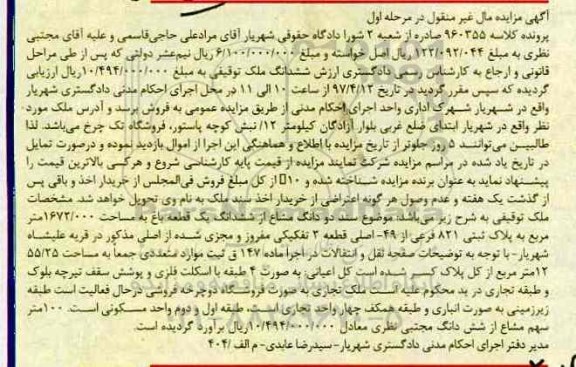 آگهی مزایده مال غیر منقول در مرحله اول
پرونده کلاسه ۹۶۰۳۵۵ صادره از شعبه ۲ شورا دادگاه حقوقی شهریار آقای مرادعلی حاجی‌قاسمی و علیه آقای مجتبی
نظری به مبلغ ۱۲۲/۰۹۲/۰۴۴ریال اصل خواسته و مبلغ ۶/۱۰۰/۰۰۰/۰۰۰ ریال نیم‌عشر دولتی که پس از طی مراحل
قانونی و ارجاع به کارشناس رسمی دادگستری ارزش ششدانگ ملک توقیفی به مبلغ ۱۰/۴۹۴/۰۰۰/۰۰۰ریال ارزیابی
گردیده که سپس مقرر گردید در تاریخ ۹۷/۴/۱۲ از ساعت ۱۰ الی ۱۱ در محل اجرای احکام مدنی دادگستری شهریار
واقع در شهریار شهرک اداری واحد اجرای احکام مدنی از طریق مزایده عمومی به فروش برسد و آدرس ملک مورد
نظر واقع در شهریار ابتدای ضلع غربی بلوار آزادگان کیلومتر ۱۲/ نبش کوچه پاستور، فروشگاه تک چرخ می‌باشد. لذا
طالبین می‌توانند ۵ روز جلوتر از تاریخ مزایده با اطلاع و هماهنگی این اجرا از اموال بازدید نموده و درصورت تمایل
در تاریخ یاد شده در مراسم مزایده شرکت نمایند مزایده از قیمت پایه کارشناسی شروع و هرکسی بالاترین قیمت را
پیشنهاد نماید به عنوان برنده مزایده شناخته شده و ۱۰٪ از کل مبلغ فروش فی‌المجلس از خریدار اخذ و باقی پس
از گذشت یک هفته و عدم وصول هر گونه اعتراضی از خریدار اخذ سند ملک به نام وی تحویل خواهد شد. مشخصات
ملک توقیفی به شرح زیر می‌باشد. موضوع سند دو دانگ مشاع از ششدانگ یک قطعه باغ به مساحت ۱۶۷۲/۰۰۰متر
مربع به پلاک ثبتی ۸۲۱ فرعی از ۴۹- اصلی قطعه ۳ تفکیکی مفروز و مجزی شده از اصلی مذکور در قریه علیشاه
شهریار- با توجه به توضیحات صفحه نقل و انتقالات در اجرا ماده ۱۴۷ ق ثبت موارد متعددی جمعاً به مساحت ۵۵/۳۵
۱۲متر مربع از کل پلاک کسر شده است کل اعیانی: به صورت ۴ طبقه با اسکلت فلزی و پوشش سقف تیرچه بلوک
و طبقه تجاری در ید محکوم علیه است ملک تجاری به صورت فروشگاه دوچرخه فروشی درحال فعالیت است طبقه
زیرزمینی به صورت انباری و طبقه همکف چهار واحد تجاری است، طبقه اول و دوم واحد مسکونی است. ۱۰۰متر
سهم مشاع از شش دانگ مجتبی نظری معادل ۱۰/۴۹۴/۰۰۰/۰۰۰ریال برآورد گردیده است.
مدیر دفتر اجرای احکام مدنی دادگستری شهریار- سیدرضا عابدی- م الف /۴۰۴